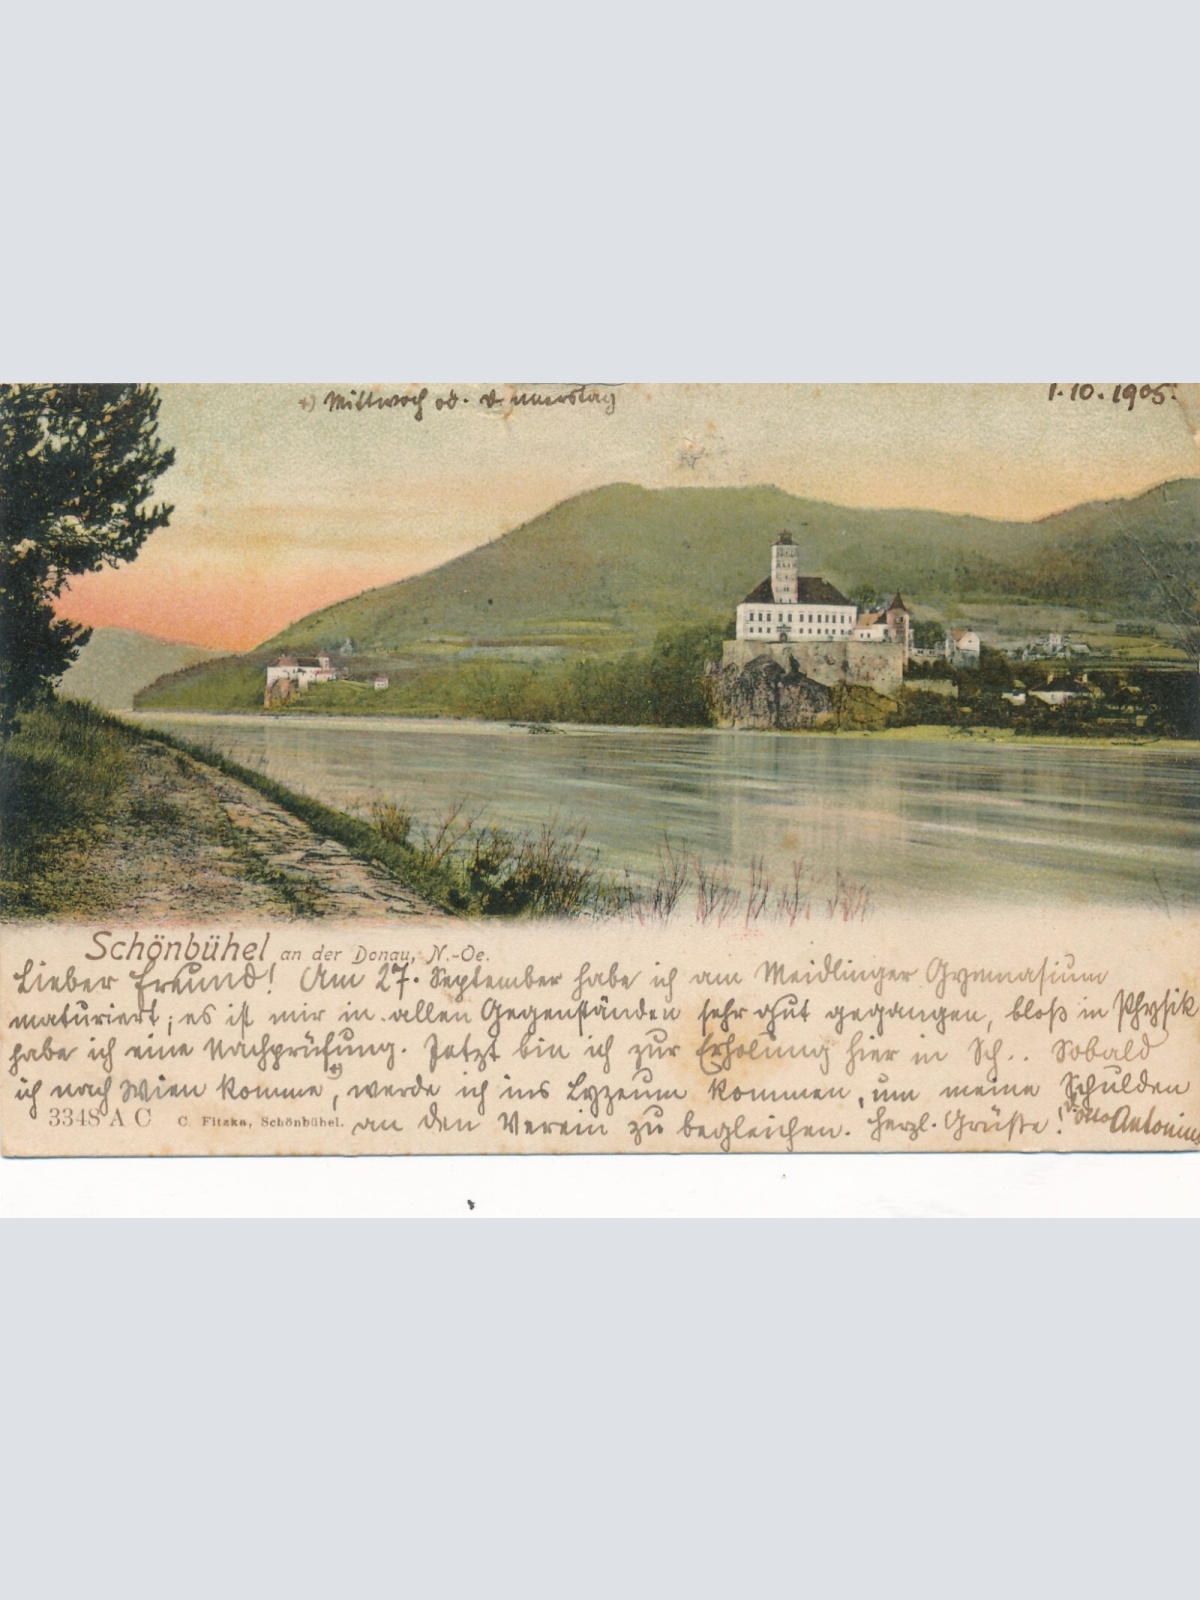 +) Mittwoch od. Donnerstag
1.10.1905.
Schönbühel an der Donau, N.-Oe.
Lieber Freund! Am 27. September habe ich am Meidlinger Gymnasium
maturiert; es ist mir in allen Gegenständen sehr gut gegangen, bloß in Physik
habe ich eine Nachprüfung. Jetzt bin ich zur Erholung hier in Sch.. Sobald
ich nach Wien komme +), werde ich ins Lyzeum kommen, um meine Schulden
3348 A C C. Fitzka, Schönbühel.
an den Verein zu begleichen. Herzl. Grüße! Otto Antonius